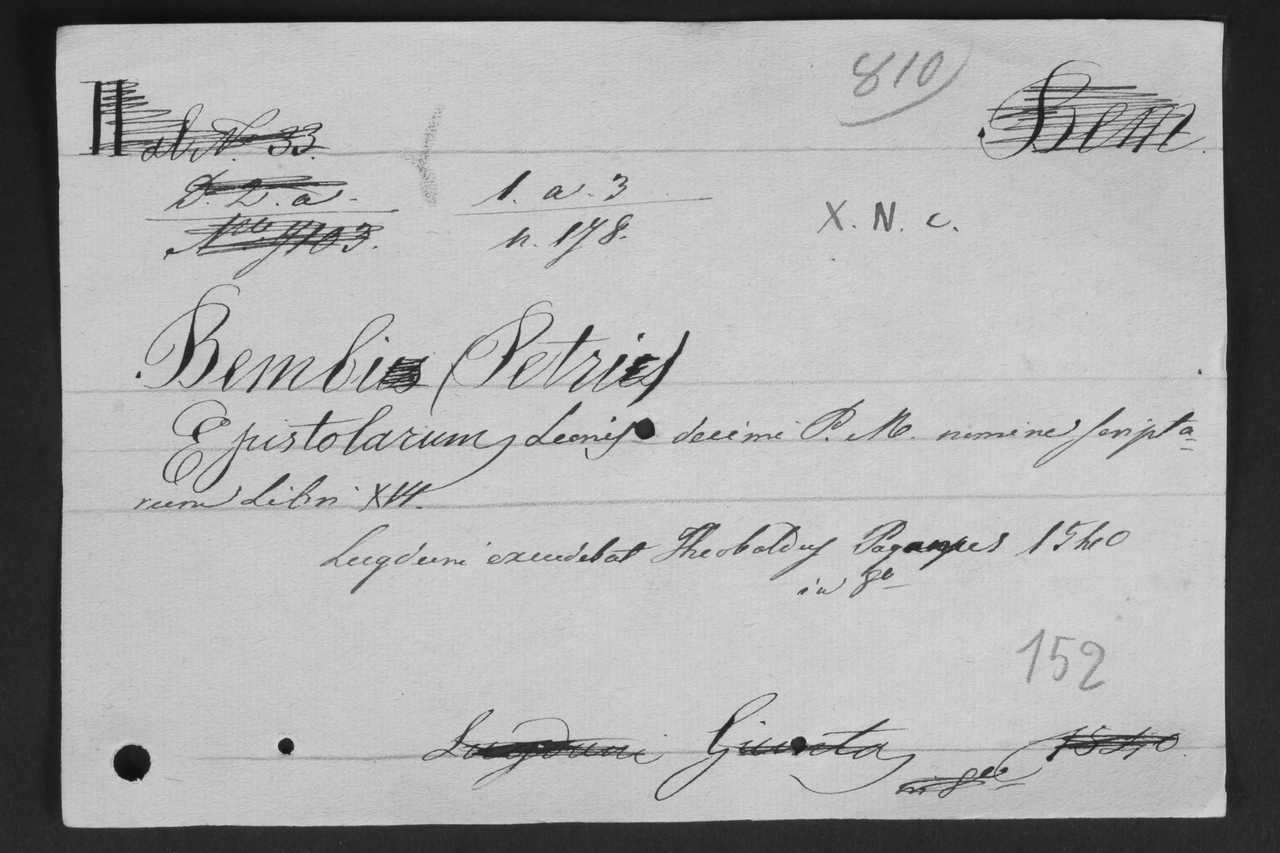 810
Bem
al. No. 33.
D. 2. a.
1. a. 3
n. 178.
X. N. c.
Bembi (Petri)
Epistolarum Leonis decimi P. M. nomine scripta=
rum Libri XVI.
Lugduni excudebat Theobaldus Paganus 1540
in 8o
152
Lugduni Giunta 1540.
in 8vo